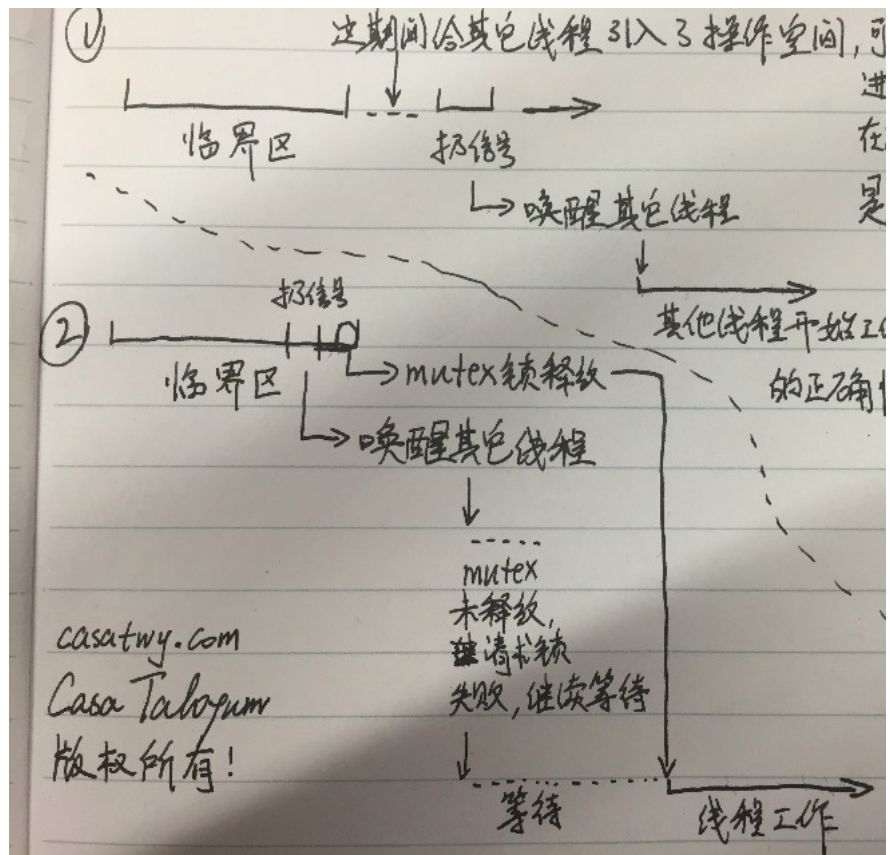 ①
这期间给其它线程引入了操作空间,可
进
在
是
临界区
扔信号
唤醒其它线程
其他线程开始工
的正确
②
扔信号
临界区
mutex锁释放
唤醒其它线程
mutex
未释放,
请求锁
失败,继续等待
等待
线程工作
casatwy.com
Casa Taloyum
版权所有!